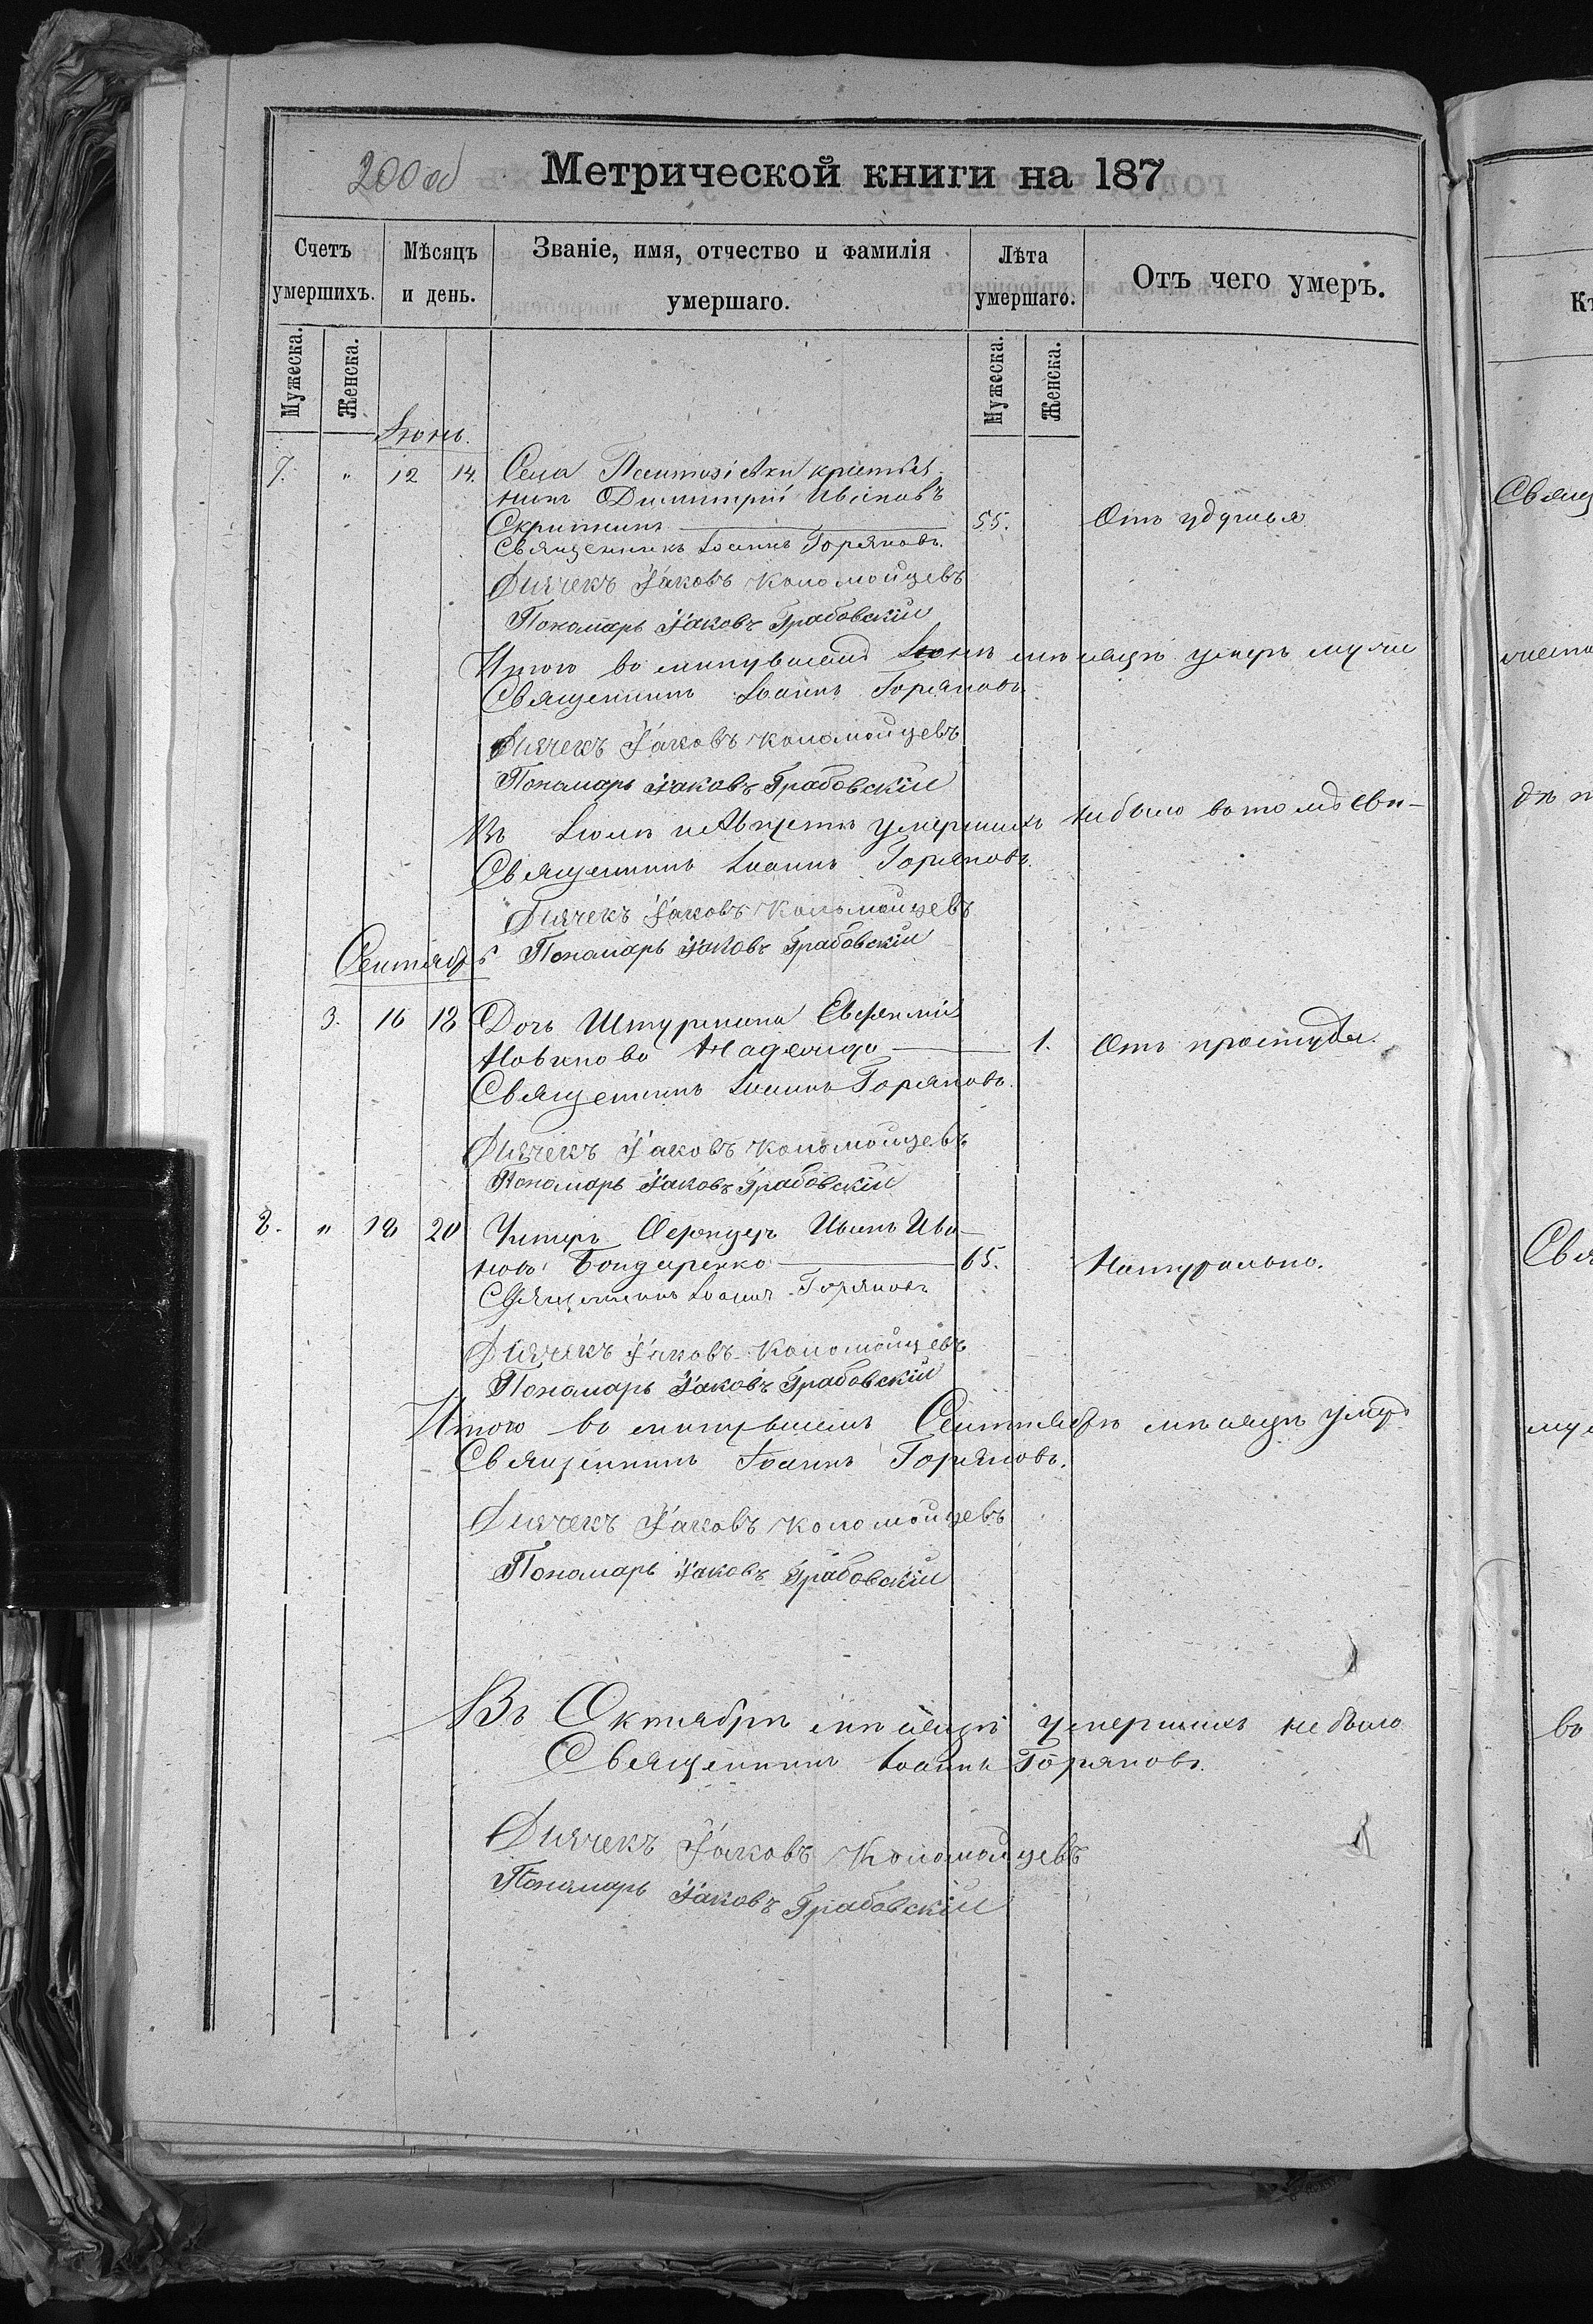 200 об
Метрической книги на 187
Счетъ умершихъ.
Мѣсяцъ и день.
Званіе, имя, отчество и фамилія умершаго.
Лѣта умершаго.
Отъ чего умеръ.
Мужеска.
Женска.
Мужеска.
Женска.
Іюнь.
7. " 12 14. Села
нинъ Димитрій Ивановъ
55. Отъ удушья
Священникъ Іоаннъ Горяновъ.
Дьячекъ Іаковъ Коломойцевъ
Пономарь Іаковъ Грабовскій
Итого во минувшемъ Іюнѣ мѣсяцѣ умеръ
Священникъ Іоаннъ Горяновъ
Дьячекъ Іаковъ Коломойцевъ
Пономарь Іаковъ Грабовскій
Въ Іюлѣ и Августѣ умершихъ не было во томъ сви-
Священникъ Іоаннъ Горяновъ.
Дьячекъ Іаковъ Коломойцевъ
Сентябрь Пономарь Іаковъ Грабовскій
3. 16 18 Дочь Штурмана
Новикова Надежда 1. Отъ простуды.
Священникъ Іоаннъ Горяновъ.
Дьячекъ Іаковъ Коломойцевъ
Пономарь Іаковъ Грабовскій
8. " 18 20 Унтеръ Офицеръ Иванъ Ива-
новъ Бондаренко 65. Натурально.
Священникъ Іоаннъ Горяновъ
Дьячекъ Іаковъ Коломойцевъ
Пономарь Іаковъ Грабовскій
Итого во минувшемъ Сентябрѣ мѣсяцѣ
Священникъ Іоаннъ Горяновъ.
Дьячекъ Іаковъ Коломойцевъ
Пономарь Іаковъ Грабовскій
Въ Октябрѣ мѣсяцѣ умершихъ не было
Священникъ Іоаннъ Горяновъ.
Дьячекъ Іаковъ Коломойцевъ
Пономарь Іаковъ Грабовскій